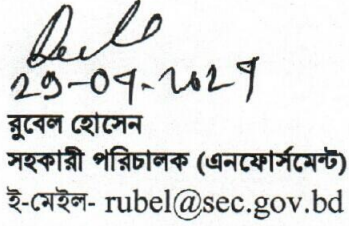 রুবেল হোসেন
সহকারী পরিচালক (এনফোর্সমেন্ট)
ই-মেইল- rubel@sec.gov.bd